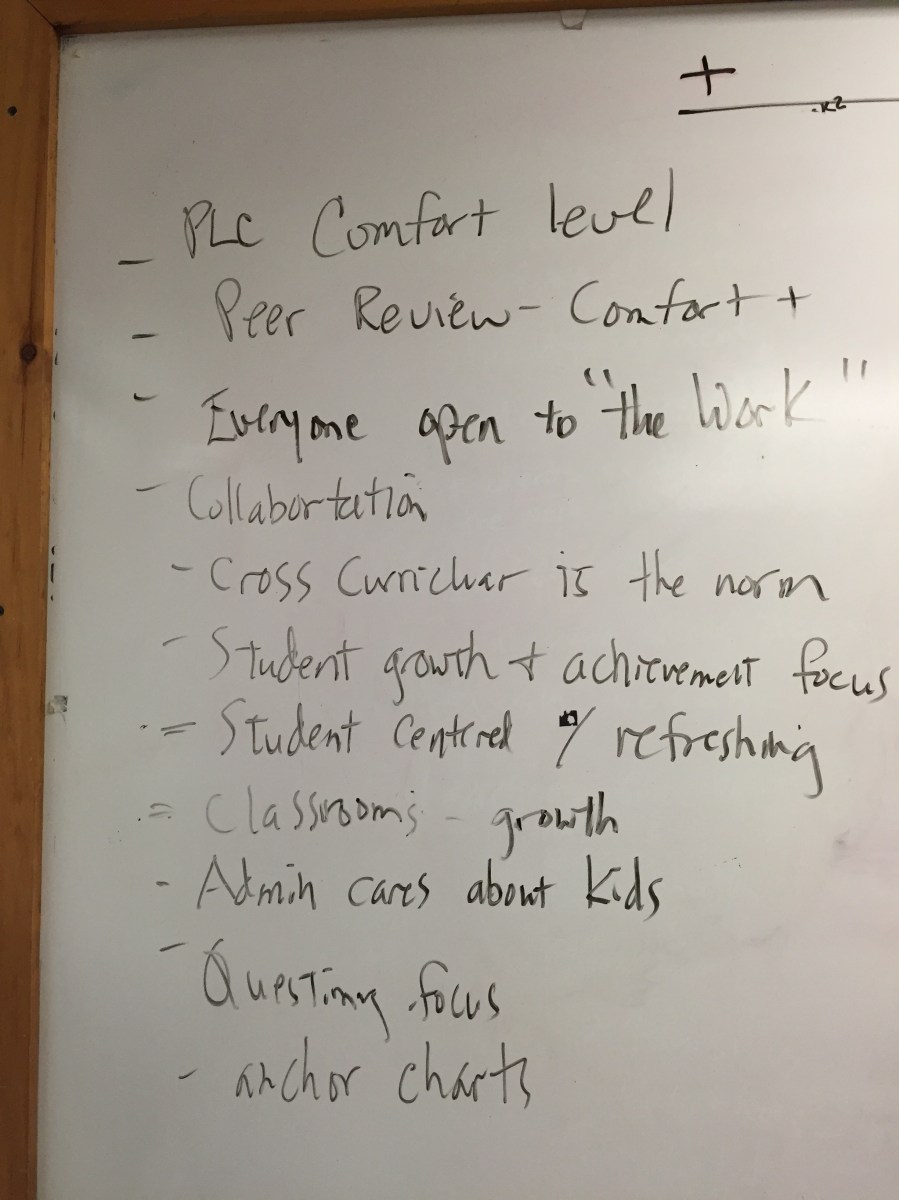 +
- PLC Comfort level
- Peer Review - Comfort +
- Everyone open to "the Work"
- Collabortation
- Cross Curricluar is the norm
- Student growth + achievement focus
= Student Centered / refreshing
= Classrooms - growth
- Admin cares about kids
- Questiong focus
- anchor charts